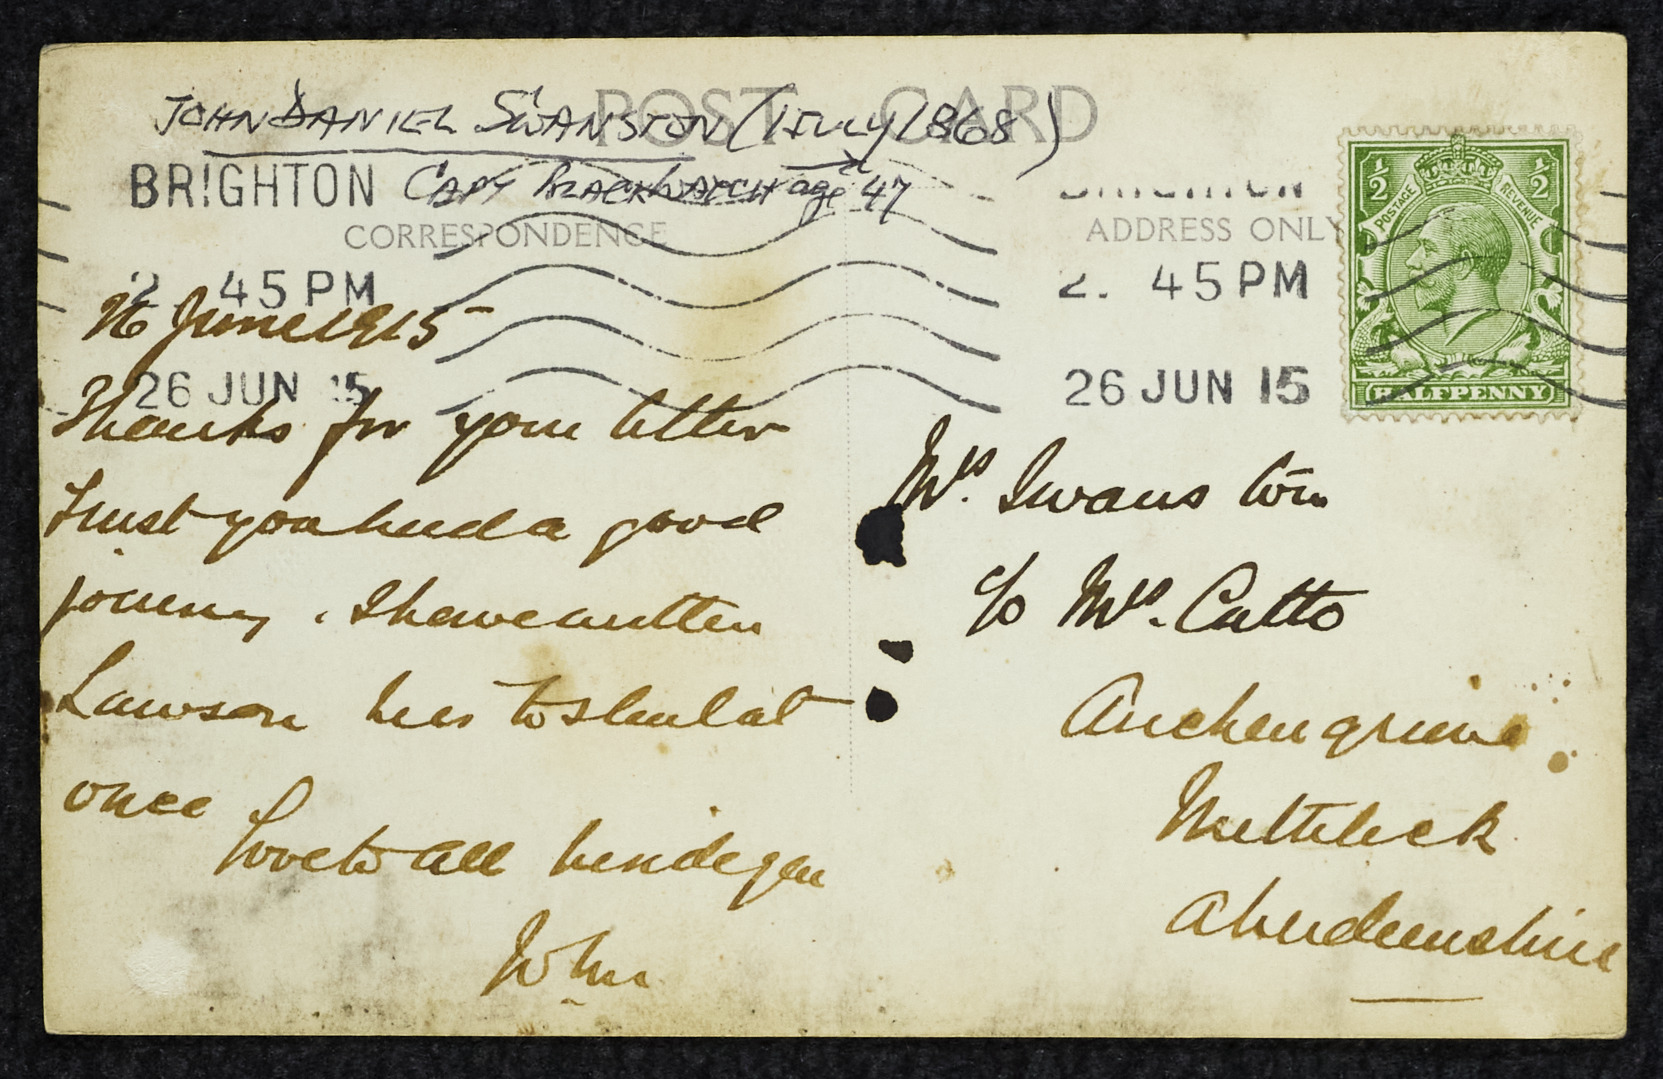 POST CARD
JOHN DANIEL SWANSTON (1 JULY 1868)
BRIGHTON
CAPT BLACKWATCH aged 47
CORRESPONDENCE
ADDRESS ONLY
2. 45 PM
2. 45 PM
26 June 1915
26 JUN 15
26 JUN 15
½ ½
POSTAGE REVENUE
HALFPENNY
Thanks for your letter
Trust you had a good
journey. I have written
Lawson has to
once
Love to all
John
Mrs. Swanston
c/o Mrs. Catto
Auchengrieve
Methlick
Aberdeenshire